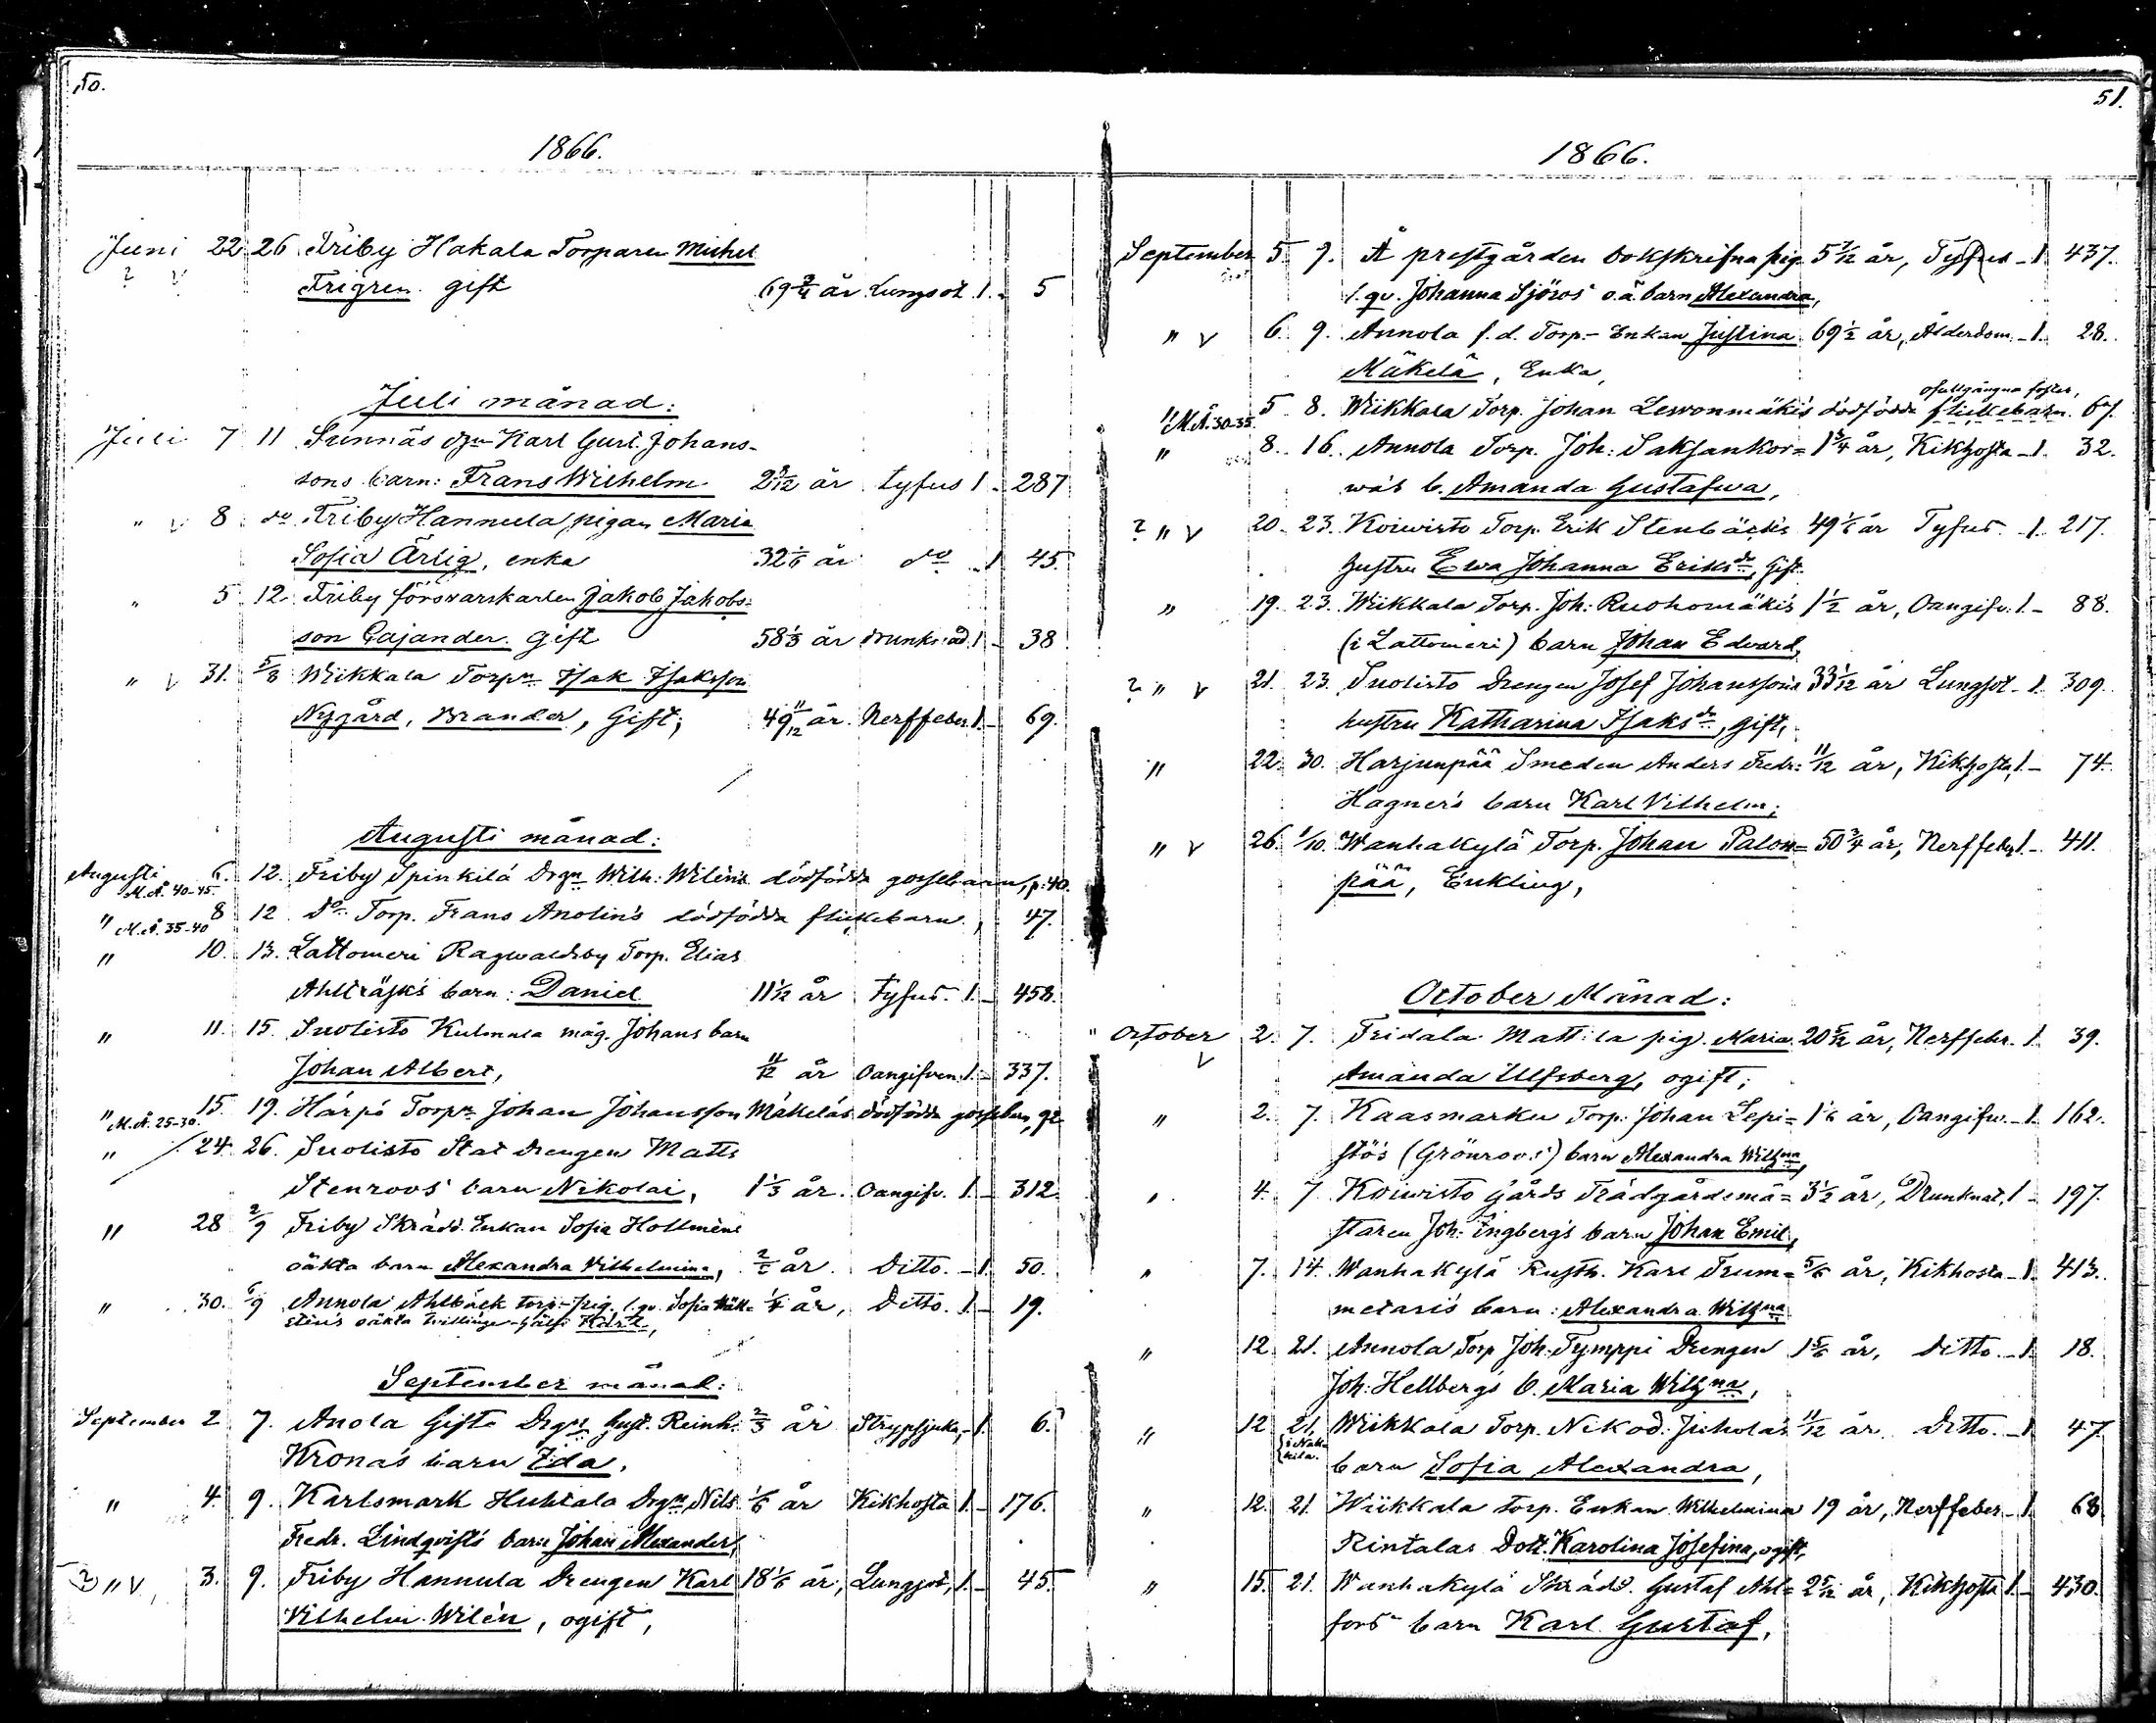 50.
1866.
Juni 22 26 Friby Hakala Torparen Michel
? v Frigren. gift 69 3/4 år Lungsot 1. - 5
Juli månad:
Juli 7 11 Sunnäs dgn Karl Gust. Johans-
sons barn: Frans Wilhelm 2 9/12 år tyfus 1 - 287
" v 8 do Friby Hannula pigan Maria
Sofia Ärlig, enka 32 1/6 år do 1 45.
" 5 12 Friby försvarskarlen Jakob Jakobs-
son Cajander. gift 58 1/3 år drunknad. 1 - 38
" v 31. 5/8 Wiikkala Torpn Isak Isaksson
Nygård, Brander, Gift, 49 11/12 år. Nerffeber. 1. - 69.
Augusti månad:
Augusti 6. 12. Friby Spinkilä Drgn Wilh: Wiléns dödfödda gossebarn, p: 40.
M.Å. 40-45.
" M.Å. 35-40 8 12 Do Torp. Frans Anolin's dödfödda flickebarn, 47.
" 10. 13. Lattomeri Ragwaldsby Torp. Elias
Ahlträsk's barn: Daniel 11 1/12 år tyfus. 1. - 458.
" 11. 15. Suolisto Kulmala måg. Johans barn
Johan Albert, 11/12 år Oangifven. 1. - 337.
" M.Å. 25-30. 15. 19. Härpö Torpn Johan Johansson Mäkeläs dödfödda gossebarn, 92
" 24. 26. Suolisto Stat drengen Matts
Stenroos' barn Nikolai, 1 1/3 år. Oangifv. 1. - 312.
" 28 2/9 Friby Skrädd. Enkan Sofia Hollméns
oäkta barn Alexandra Vilhelmina, år. Ditto. - 1. 50.
" 30. 6/9 Annola Ahlbäck torp. - pig. l.qv. Sofia 1/4 år, Ditto. 1. - 19.
oäkta tvillinge- Karl,
September månad:
September 2 7. Anola Gifte Drgn Gust. Reinh. 2/3 år Strypsjuka, - 1. 6.
Kronas barn Ida,
" 4. 9. Karlsmark Huhtala Drgn Nils 1/6 år Kikhosta 1. - 176.
Fredr. Lindqvists barn Johan Alexander,
? " v 3. 9. Friby Hannula Drengen Karl 18 1/6 år, Lungsot, 1. - 45.
Vilhelm Wilén, ogift,
51.
1866.
September 5. 9. Å prestgården bokskrifna pig. 5 7/12 år, Tyfus - 1. 437.
l. qv. Johanna Sjöros' o.ä. barn Alexandra,
" v 6. 9. Annola f. d. Torp. - Enkan Justina 69 1/2 år, Ålderdom. - 1. 28.
Mäkelä, Enka,
ofullgångna foster,
" M.Å. 30-35. 5 8. Wiikkala Torp. Johan Lewonmäkis dödfödda flickebarn. 67.
" 8. 16. Annola Torp. Joh: Saksankor= 1 3/4 år, Kikhosta - 1. 32.
was b. Amanda Gustafwa,
? " v 20. 23. Koiwisto Torp. Erik Stenbäcks 49 1/6 år Tyfus. 1. 217.
hustru Ewa Johanna Eriksdr, Gift.
" 19. 23. Wiikkala Torp. Joh: Ruohomäkis 1 1/2 år, Oangifv: 1 - 88.
(i Lattomeri) barn Johan Edvard,
? " v 21. 23. Suolisto Drengen Josef Johanssons 33 1/12 år Lungsot - 1. 309.
hustru Katharina Isaksdr, gift,
" 22. 30. Harjunpää Smeden Anders Fredr: 11/12 år, Kikhosta, 1. - 74.
Hagner's barn Karl Vilhelm;
" v 26. 1/10. Wanhakylä Torp. Johan Palom= 50 3/4 år, Nerffeber 1. - 411.
pää, Enkling,
October Månad:
October 2. 7. Fridala Mattila pig. Maria 20 5/12 år, Nerffeber. 1. 39.
v Amanda Ulfsberg, ogift;
" 2. 7. Kaasmarku Torp. Johan Lepi= 1 1/6 år, Oangifv. - 1. 162.
stös (Grönroos') barn Alexandra Wilhna,
" 4. 7. Koiwisto Gårds Trädgårdsmä= 3 1/2 år, Drunknat, 1 - 197.
staren Joh: Engbergs barn Johan Emil,
" 7. 14. Wanhakylä Rusth. Karl Trum= 5/6 år, Kikhosta - 1. 413.
metaris barn: Alexandra Wilhna
" 12 21. Annola Torp Joh. Tymppi Drengen 1 5/6 år, Ditto. - 1. 18.
Joh: Hellbergs b. Maria Wilhna,
" 12 21. Wiikkala Torp. Nikod: Juholas 11/12 år. Ditto. - 1 47.
i Nakkila. barn Sofia Alexandra,
" 12. 21. Wiikkala torp. Enkan Wilhelmina 19 år, Nerffeber - 1. 68
Rintalas Dott. Karolina Josefina, ogift,
" 15. 21. Wanhakylä Skrädd. Gustaf Ahl= 2 5/12 år, Kikhosta 1. - 430.
fors barn Karl Gustaf,